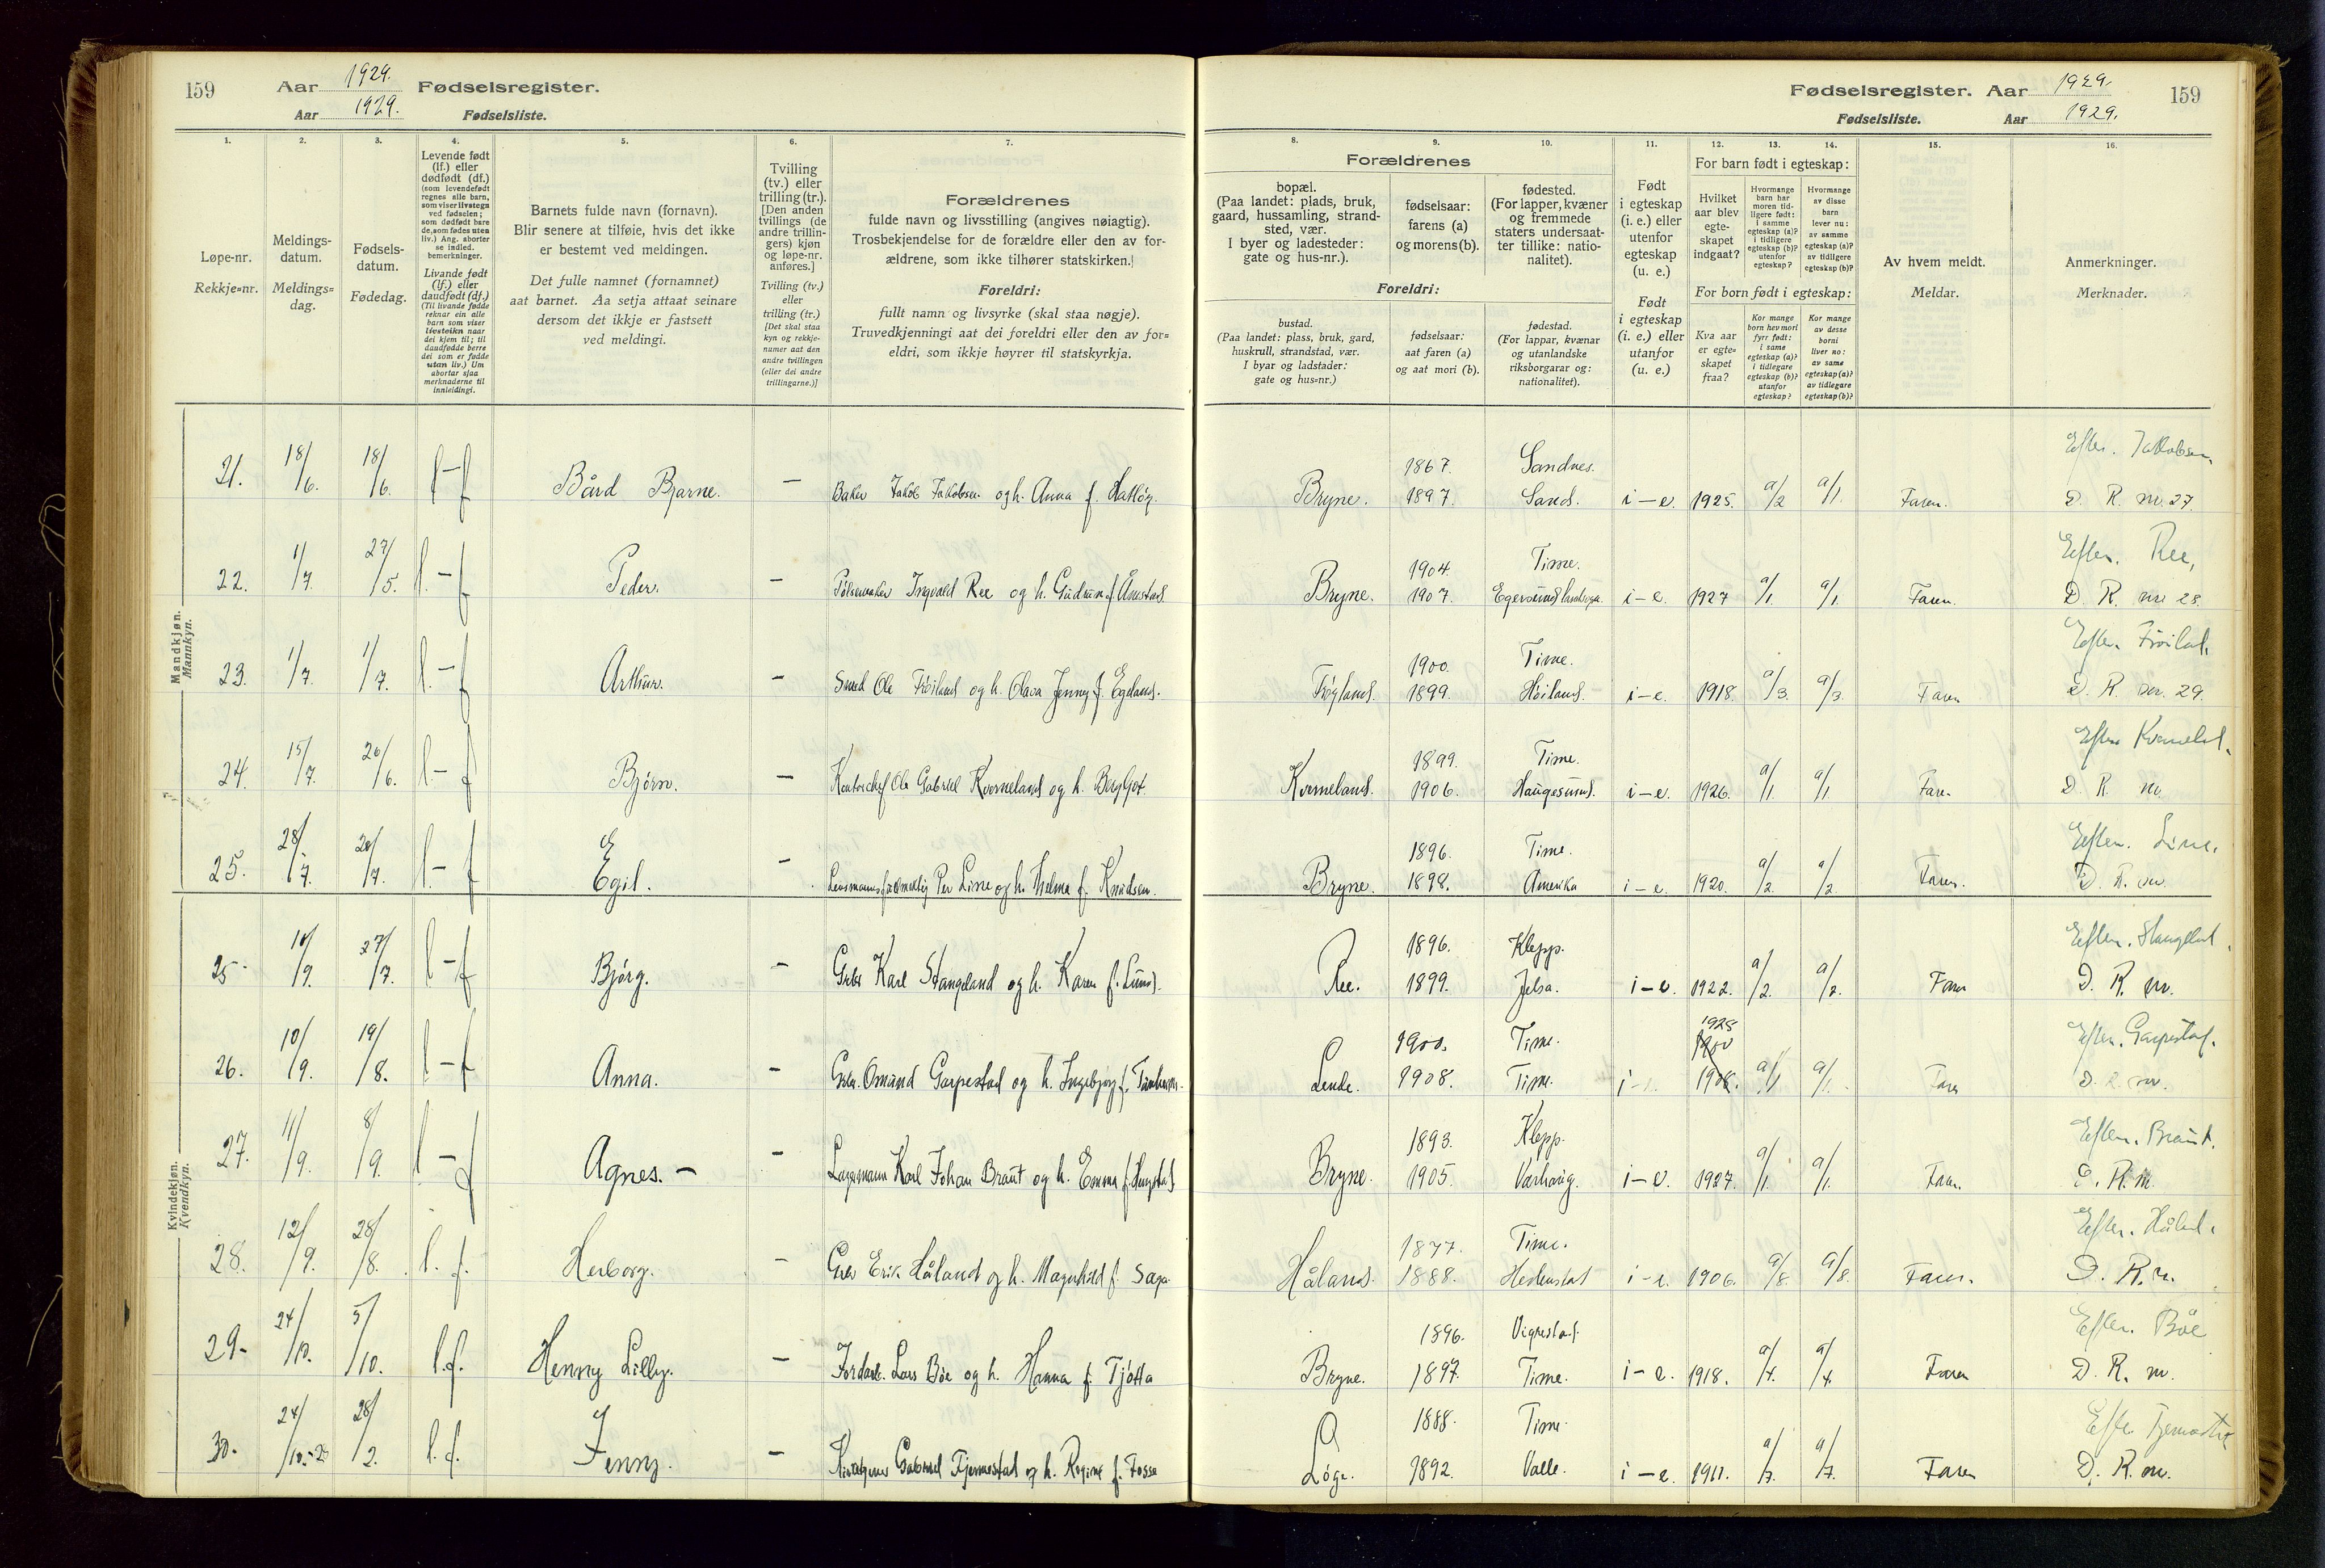 159 Aar 1929. Fødselsregister.
Aar 1929. Fødselsliste.
Fødselsregister. Aar 1929. 159
Fødselsliste. Aar 1929.
1. 2. 3. 4. 5. 6. 7.
Løpe-nr.
Rekkje=nr.
Meldings-
datum.
Meldings=
dag.
Fødsels-
datum.
Fødedag.
Levende født
(lf.) eller
dødfødt (df.)
(som levendefødt
regnes alle barn,
som viser livstegn
ved fødselen;
som dødfødt bare
de, som fødes uten
liv.) Ang. aborter
se indled.
bemerkninger.
Livande født
(lf.) eller
daudfødt (df.)
(Til livande fødde
reknar ein alle
barn som viser
livsteikn naar
dei kjem til; til
daudfødde berre
dei som er fødde
utan liv.) Um
abortar sjaa
merknaderne til
innleidingi.
Barnets fulde navn (fornavn).
Blir senere at tilføie, hvis det ikke
er bestemt ved meldingen.
Det fulle namnet (fornamnet)
aat barnet. Aa setja attaat seinare
dersom det ikkje er fastsett
ved meldingi.
Tvilling
(tv.) eller
trilling (tr.).
[Den anden
tvillings (de
andre trillin-
gers) kjøn
og løpe-nr.
anføres.]
Tvilling (tv.)
eller
trilling (tr.)
[Det skal staa
kyn og rekkje-
numer aat den
andre tvillingen
(eller dei andre
trillingarne.)]
Forældrenes
fulde navn og livsstilling (angives nøiagtig).
Trosbekjendelse for de forældre eller den av for-
ældrene, som ikke tilhører statskirken.]
Foreldri:
fullt namn og livsyrke (skal staa nøgje).
Truvedkjenningi aat dei foreldri eller den av for=
eldri, som ikkje høyrer til statskyrkja.
8. 9. 10. 11. 12. 13. 14. 15. 16.
Forældrenes
bopæl.
(Paa landet: plads, bruk,
gaard, hussamling, strand-
sted, vær.
I byer og ladesteder:
gate og hus-nr.).
fødselsaar:
farens (a)
og morens (b).
fødested.
(For lapper, kvæner
og fremmede
staters undersaat-
ter tillike: natio-
nalitet).
Foreldri:
bustad.
(Paa landet: plass, bruk, gard,
huskrull, strandstad, vær.
I byar og ladstader:
gate og hus=nr.)
fødselsaar:
aat faren (a)
og aat mori (b).
fødestad.
(For lappar, kvænar
og utanlandske
riksborgarar og:
nationalitet).
Født
i egteskap
(i. e.) eller
utenfor
egteskap
(u. e.)
Født
i egteskap
(i. e.) eller
utanfor
egteskap
(u. e.)
For barn født i egteskap:
Hvilket
aar blev
egte-
skapet
indgaat?
Hvormange
barn har
moren tid-
ligere født:
i samme
egteskap (a)?
i tidligere
egteskap (b)?
utenfor
egteskap?
Hvormange
av disse
barn
lever nu:
av samme
egteskap (a)?
av tidligere
egteskap (b)?
For born født i egteskap:
Kva aar
er egte=
skapet
fraa?
Kor mange
born hev mori
fyrr født:
i same
egteskap (a)?
i tidlegare
egteskap (b)?
utanfor
egteskap?
Kor mange
av desse
borni
liver no:
av same
egteskap (a)?
av tidlegare
egteskap (b)?
Av hvem meldt.
Meldar.
Anmerkninger.
Merknader.
Mandkjøn.
Mannkyn.
21. 18/6. 18/6. l-f Bård Bjarne. - Baker Jakob Jakobsen og h. Anna f. Bryne. 1867. 1897. Sandnes. Sand. i-e. 1925. a/2 a/1. Faren. Eftern. Jakobsen. D. R. nr. 27.
22. 1/7. 27/5. l-f Peder. - Pølsemaker Ingvald Ree og h. Gudrun f. Årrestad. Bryne. 1904. 1907. Time. Egersund landsogn. i-e. 1927 a/1. a/1. Faren. Eftern. Ree, D. R. nr. 28.
23. 1/7. 1/7. l-f Arthur. - Smed Ole Frøiland og h. Olava Jenny f. Egeland. Frøyland. 1900. 1899. Time. Høiland. i-e. 1918. a/3. a/3. Faren Eftern. Frøiland. D. R. nr. 29.
24. 15/7. 20/6. l-f Bjørn. - Kontorchef Ole Gabriel Kverneland og h. Bergljot. Kverneland. 1899. 1906. Time. Haugesund. i-e. 1926. a/1. a/1. Faren Eftern. Kverneland. D. R. nr.
25. 28/7. 20/7. l-f Egil. - Lensmannsfullmektig Per Line og h. Thelma f. Knudsen. Bryne. 1896. 1898. Time. Amerika i-e. 1920. a/2. a/2. Faren. Eftern. Line. D. R. nr.
Kvindekjøn.
Kvendkyn.
25. 10/9. 27/7. l-f Bjørg. - Grbr. Karl Stangeland og h. Karen f. Lund. Ree. 1896. 1899. Klepp. Jelsa. i-e. 1922. a/2. a/2. Faren Eftern. Stangeland. D. R. nr.
26. 10/9. 19/8. l-f Anna. - Grbr. Omund Garpestad og h. Ingebjørg f. Lende. 1900. 1908. Time. Time. i-e. 1928 a/1 a/1. Faren Eftern. Garpestad. D. R. nr.
27. 11/9. 8/9. l-f Agnes. - - Lagermann Karl Johan Braut og h. Emma f. Bryne. 1893. 1905. Klepp. Varhaug. i-e. 1927. a/1. a/1. Faren. Eftern. Braut. D. R. nr.
28. 12/9. 28/8. l.f. Herborg. - Grbr Erik Håland og h. Magnhild f. Håland. 1877. 1888. Time. i-e. 1906. a/8. a/8. Faren. Eftern. Håland. D. R. nr.
29. 24/10. 5/10. l.f. Henny Lilly. - Jordarb. Lars Bøe og h. Hanna f. Tjøtta Bryne. 1896. 1897. Vigrestad. Time. i-e. 1918. a/4. a/4. Faren Eftern. Bøe D. R. nr.
30. 24/10.-29 28/2. l.f. Jenny. - Gabriel Tjemestad og h. Regine f. Fosse Løge. 1888. 1892. Time. Valle. i-e. 1911. a/7. a/7. Faren Eftern. Tjemestad D. R. nr.